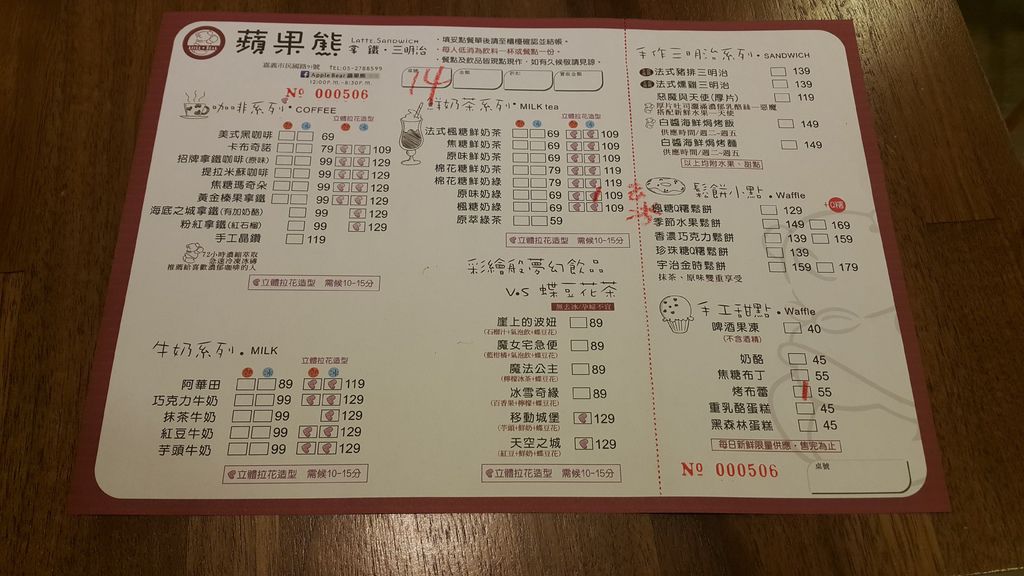 蘋果熊 Latte.Sandwich
拿鐵·三明治
嘉義市民國路91號 TEL:05-2788599
Apple Bear 蘋果熊
12:00P.M.-8:30P.M.
·填妥點餐單後請至櫃檯確認並結帳。
·每人低消為飲料一杯或餐點一份。
·餐點及飲品皆現點現作,如有久候敬請見諒。
14
Nº 000506
咖啡系列·COFFEE
立體拉花造型
美式黑咖啡 69
卡布奇諾 79 109
招牌拿鐵咖啡(原味) 99 129
提拉米蘇咖啡 99 129
焦糖瑪奇朵 99 129
黃金榛果拿鐵 99 129
海底之城拿鐵(有加奶酪) 99 129
粉紅拿鐵(紅石榴) 99 129
手工晶鑽 119
72小時濃縮萃取
急速冷凍冰磚
推薦給喜歡濃郁咖啡的人
立體拉花造型 需候10-15分
牛奶系列·MILK
立體拉花造型
阿華田 89 119
巧克力牛奶 99 129
抹茶牛奶 99 129
紅豆牛奶 99 129
芋頭牛奶 99 129
立體拉花造型 需候10-15分
鮮奶茶系列·MILK tea
立體拉花造型
法式楓糖鮮奶茶 69 109
焦糖鮮奶茶 69 109
原味鮮奶茶 69 109
棉花糖鮮奶茶 79 119
棉花糖鮮奶綠 79 119
原味奶綠 69 109
楓糖奶綠 69 109
原萃綠茶 59
立體拉花造型 需候10-15分
彩繪般夢幻飲品
V.S 蝶豆花茶
無去冰/孕婦不宜
崖上的波妞 89
(石榴汁+氣泡飲+蝶豆花)
魔女宅急便 89
(藍柑橘+氣泡飲+蝶豆花)
魔法公主 89
(檸檬冰茶+蝶豆花)
冰雪奇緣 89
(百香果+檸檬+蝶豆花)
移動城堡 129
(芋頭+鮮奶+蝶豆花)
天空之城 129
(紅豆+鮮奶+蝶豆花)
立體拉花造型 需候10-15分
手作三明治系列·SANDWICH
法式豬排三明治 139
法式燻雞三明治 139
惡魔與天使(厚片) 119
厚片吐司灑滿濃郁乳酪絲—惡魔
搭配新鮮水果—天使
白醬海鮮焗烤飯 149
供應時間/週二~週五
白醬海鮮焗烤麵 149
供應時間/週二~週五
以上均附水果、甜點
鬆餅小點·Waffle
+Q糬
楓糖Q糬鬆餅 129
季節水果鬆餅 149 169
香濃巧克力鬆餅 139 159
珍珠糖Q糬鬆餅 139
宇治金時鬆餅 159 179
抹茶、原味雙重享受
手工甜點·Waffle
啤酒果凍 40
(不含酒精)
奶酪 45
焦糖布丁 55
烤布蕾 55
重乳酪蛋糕 45
黑森林蛋糕 45
每日新鮮限量供應,售完為止
Nº 000506
桌號